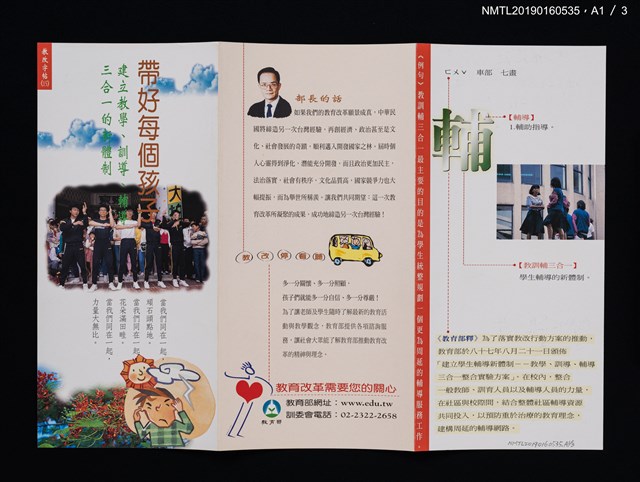 NMTL20190160535，A1 / 3
教改字帖
帶好每個孩子
建立教學、訓導、輔導
三合一的新體制
當我們同在一起，
頑石頭點地。
當我們同在一起，
花朵滿田畦。
當我們同在一起，
力量大無比。
部長的話
如果我們的教育改革願景成真，中華民
國將締造另一次台灣經驗，再創經濟、政治甚至是文
化、社會發展的奇蹟，順利邁入開發國家之林。屆時個
人心靈得到淨化、潛能充分開發，而且政治更加民主、
法治落實、社會有秩序、文化品質高，國家競爭力也大
幅提振，而為舉世所稱羨。讓我們共同期望：這一次教
育改革所凝聚的成果，成功地締造另一次台灣經驗！
教改停看聽
多一分關懷，多一分照顧。
孩子們就能多一分自信，多一分尊嚴！
為了讓老師及學生隨時了解最新的教育活
動與教學觀念，教育部提供各項諮詢服
務，讓社會大眾能了解教育部推動教育改
革的精神與理念。
教育改革需要您的關心
教育部網址：www.edu.tw
訓委會電話：02-2322-2658
教育部
《例句》教訓輔三合一最主要的目的是為學生統整規劃一個更為周延的輔導服務工作。
ㄈㄨˇ 車部 七畫
輔
【輔導】
1.輔助指導。
【教訓輔三合一】
學生輔導的新體制。
《教育部釋》為了落實教改行動方案的推動，
教育部於八十七年八月二十一日頒佈
「建立學生輔導新體制－－教學、訓導、輔導
三合一整合實驗方案」，在校內，整合
一般教師、訓育人員以及輔導人員的力量，
在社區與校際間，結合整體社區輔導資源
共同投入，以預防重於治療的教育理念，
建構周延的輔導網路。
NMTL20190160535，A1/3